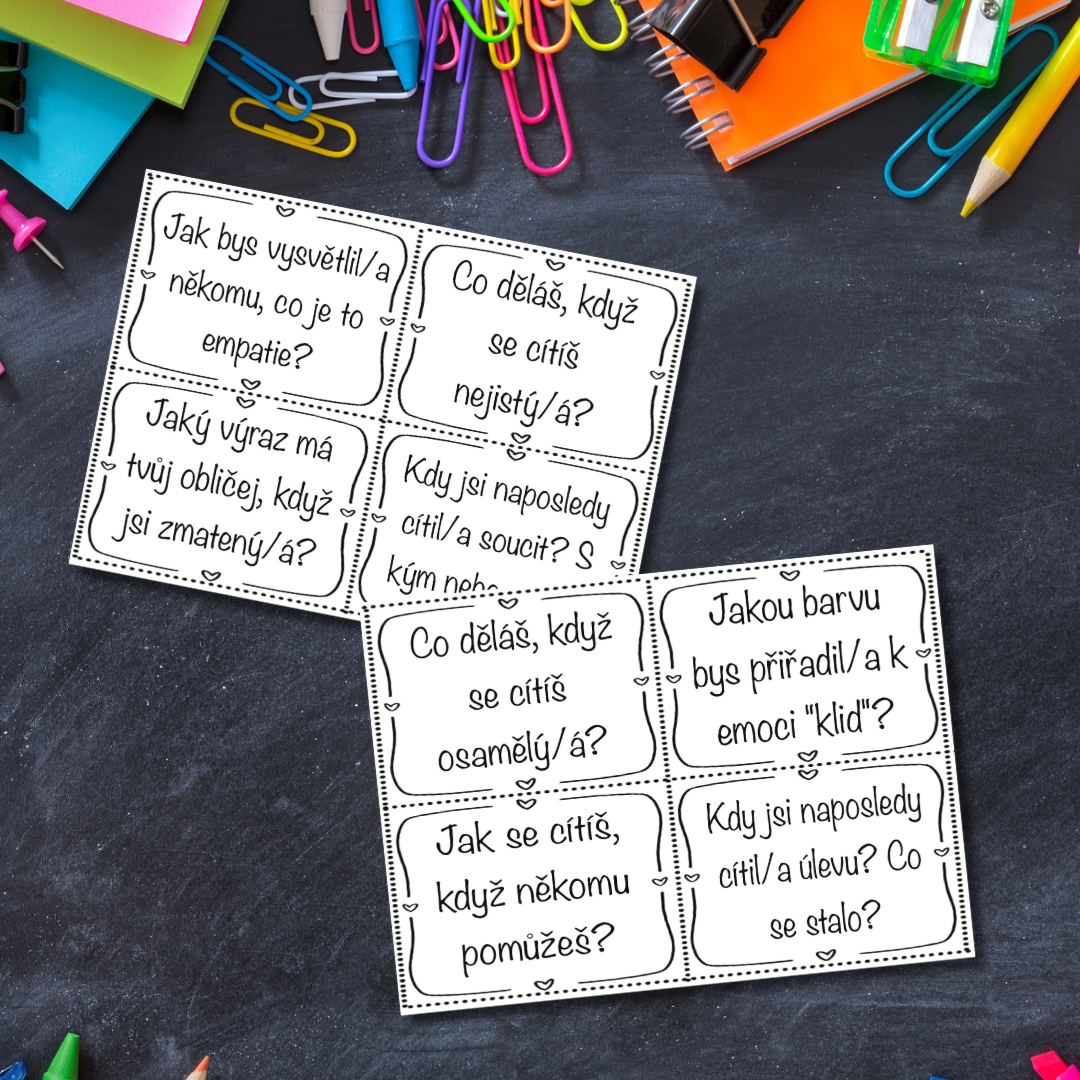 Jak bys vysvětlil/a
někomu, co je to
empatie?
Co děláš, když
se cítíš
nejistý/á?
Jaký výraz má
tvůj obličej, když
jsi zmatený/á?
Kdy jsi naposledy
cítil/a soucit? S
kým
Co děláš, když
se cítíš
osamělý/á?
Jakou barvu
bys přiřadil/a k
emoci "klid"?
Jak se cítíš,
když někomu
pomůžeš?
Kdy jsi naposledy
cítil/a úlevu? Co
se stalo?